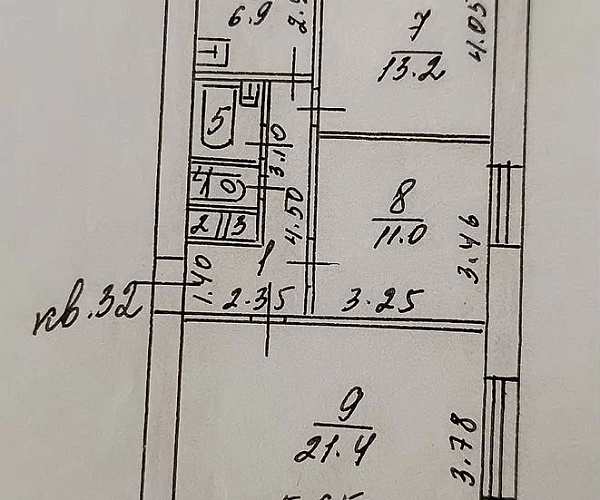 6.9
7
13.2
4.05
5
3.10
4
2
3
4.50
8
11.0
3.46
1
1.40
2.35
3.25
кв.32
9
21.4
3.78